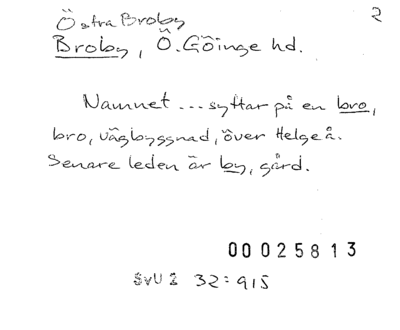 Östra Broby 2
Broby, Ö. Göinge hd.
Namnet ... syftar på en bro,
bro, vägbyggnad, över Helgeå.
Senare leden är by, gård.
00025813
SvU 2 32:915